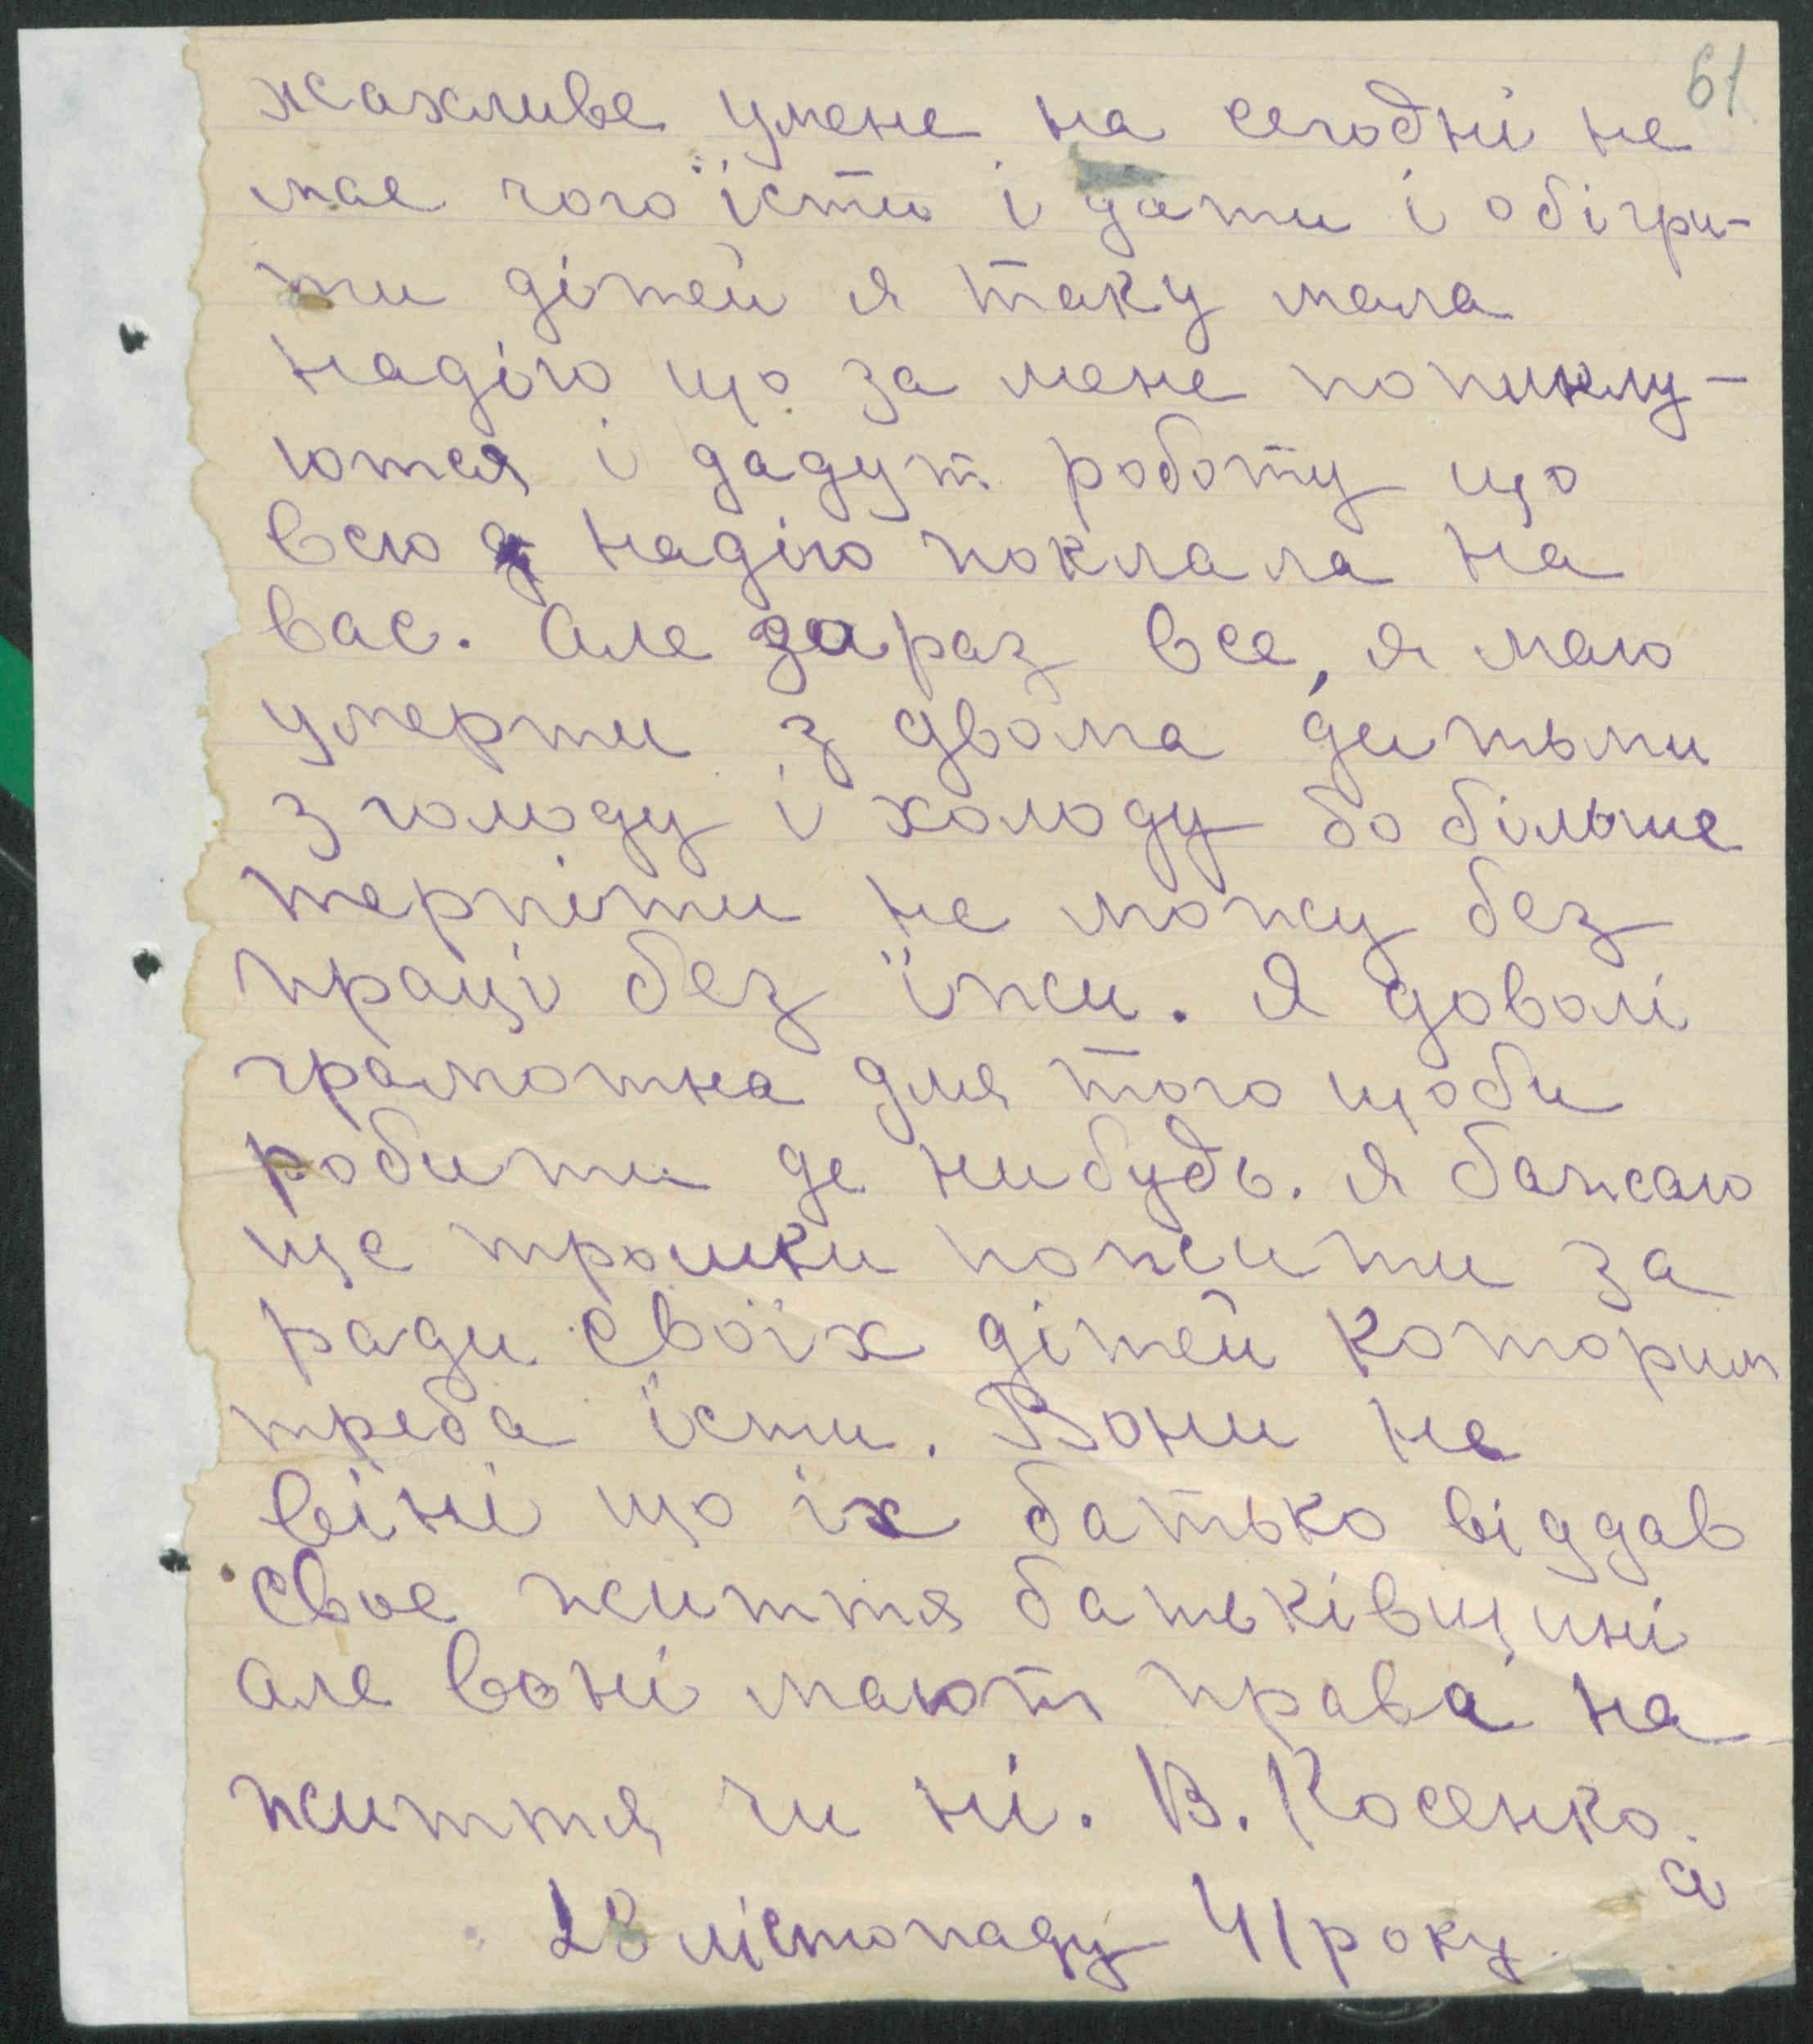 61
жахливе умене на сегодні не
мае чого їсти і дати і обігри-
ти дітей я таку мала
надію що за мене попиклу-
ются і дадут роботу що
всю надію поклала на
вас. Але зараз все, я маю
умерти з двома детьми
з голоду і холоду бо більше
терпіти не можу без
праці без їжи. Я доволі
грамотна для того щоби
робити де нибудь. я бажаю
ще трошки пожити за
ради своїх дітей которим
треба їсти. Вони не
віні що іх батько віддав
свое життя батьківщині
але воні мают права на
життя чи ні. В. Косенко.
а
28 лістопаду 41 року